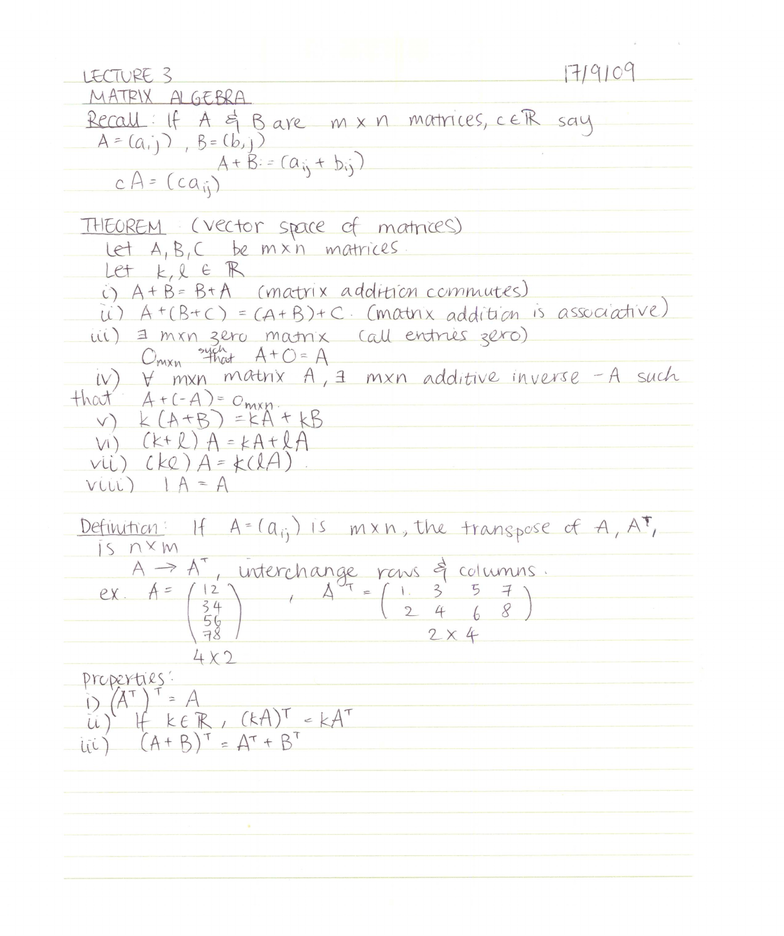 LECTURE 3 17/9/09
MATRIX ALGEBRA
Recall: If A & B are m×n matrices, c∈ℝ say
A=(aij), B=(bij)
A+B:=(aij+bij)
cA=(caij)
THEOREM (vector space of matrices)
Let A,B,C be m×n matrices
Let k,l ∈ ℝ
i) A+B=B+A (matrix addition commutes)
ii) A+(B+C)=(A+B)+C. (matrix addition is associative)
iii) ∃ m×n zero matrix (all entries zero)
0m×n such that A+0=A
iv) ∀ m×n matrix A, ∃ m×n additive inverse -A such
that A+(-A)=0m×n.
v) k(A+B)=kA+kB
vi) (k+l)A=kA+lA
vii) (kl)A=k(lA).
viii) 1A=A
Definition: If A=(aij) is m×n, the transpose of A, Aᵀ,
is n×m
A → Aᵀ, interchange rows & columns.
ex. A= (12 , Aᵀ = (1. 3 5 7)
34 2 4 6 8
56 2×4
78)
4×2
Properties:
i) (Aᵀ)ᵀ = A
ii) If k∈ℝ, (kA)ᵀ = kAᵀ
iii) (A+B)ᵀ = Aᵀ + Bᵀ